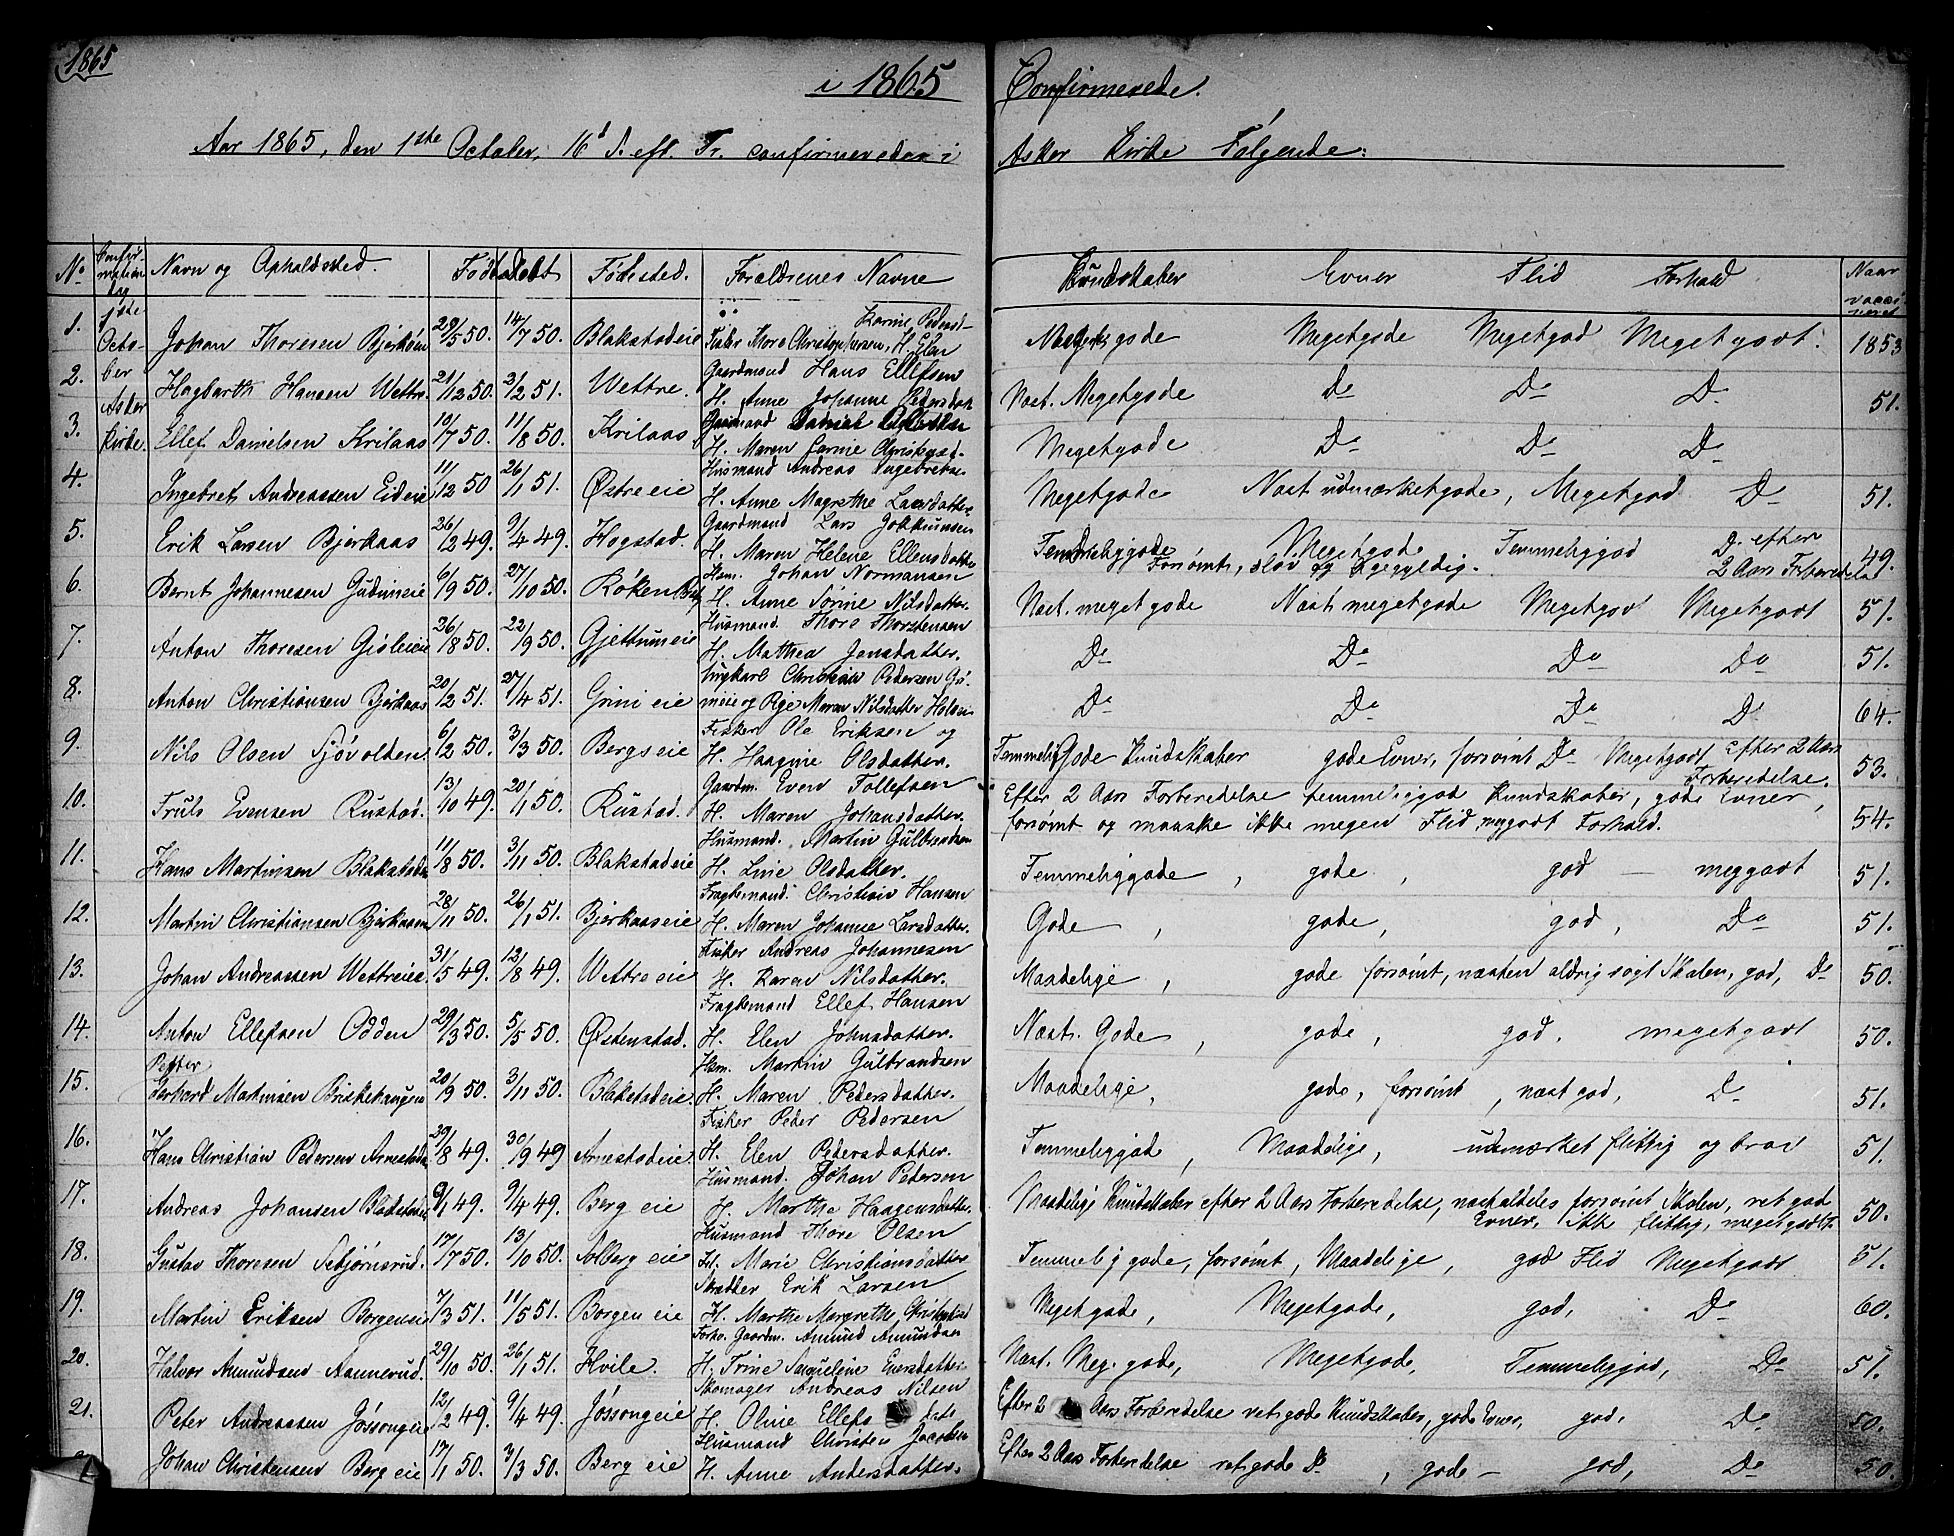 1865
i 1865 Confirmerede.
Aar 1865, den 1ste October, 16d S. eft. Tr. confirmeredes i Asker Kirke Følgende:
No Confirmations Dag Navn og Opholdssted. Født Døbt Fødested. Forældrenes Navne Kundskaber Evner Flid Forhold Naar vaccineret
1ste October Asker Kirke.
Karine Pedersd-
1. Johan Thoresen Bjerkøen 29/5 50. 14/7 50. Blakstadeie Fisker Thore Christophersen, H. Elen Meget gode Megetgode Megetgod Megetgodt. 1853
Gaardmand Hans Ellefsen
2. Hagbarth Hansen Wettre. 21/12 50. 2/2 51. Wettre. H. Anne Johanne Pedersdatt Næst. Megetgode Do Do Do 51.
Gaardmand
3. Ellef Danielsen Krilaas 10/7 50. 11/8 50. Krilaas H. Maren Megetgode Do Do Do
Husmand Andreas Ingebretse-
4. Ingebret Andreassen Eideie 11/12 50 26/1 51. Østre eie H. Anne Magrethe Larsdatter Megetgode Næst udmærketgode, Megetgod Do 51.
Gaardmand Lars
5. Erik Larsen Bjerkaas 26/2 49. 9/4 49. Hogstad. H. Maren Helene Ellensdatter Temmeliggode Megetgode Temmeliggod Do efter 49.
Forsømt, sløv og ligegyldig. 2 Aars Forberedelse
Hsm. Johan Normansen
6. Bernt Johannesen Gudimeie 6/9 50. 27/10 50. Røken H. Anne Sørine Nilsdatter. Næst. meget gode Næst megetgode Megetgodt Megetgodt 51.
Husmand. Thore Thorstensen
7. Anton Thoresen Gisleeie 26/8 50. 22/9 50. Gjettumeie H. Mathea Jonsdatter. Do Do Do Do 51.
Ungkarl Christian Pedersen Gis-
8. Anton Christiansen Bjerkaas 20/2 51. 27/4 51. Grini eie meie og Pige Maren Nilsdatter Do Do Do Do 64.
Fisker Ole Eriksen og
9. Nils Olsen Sjøvolden. 6/2 50. 3/3 50. Bergseie H. Haagine Olsdatter. Temmelig Gode Kundskaber gode Evner, forsømt Do Megetgodt Efter 2 Aars 53.
Forberedelse.
Gaardm. Even Tollefsen Efter 2 Aars Forberedelse temmeliggod Kundskaber, gode Evner,
10. Truls Evensen Rustad. 13/10 49. 20/1 50. Rustad. H. Maren Johansdatter. forsømt og maaske ikke megen Flid, meg godt Forhold. 54.
Husmand. Martin Gulbrandsen
11. Hans Martinsen Blakstadeie 11/8 50. 3/11 50. Blakstadeie H. Line Olsdatter. Temmeliggode, gode, god — meggodt 51.
Fragtemand. Christian Hansen
12. Martin Christiansen Bjerkaasen 28/11 50. 26/1 51. Bjerkaaseie H. Maren Johanne Larsdatter. Gode, gode, god, Do 51.
Fisker Andreas Johannesen
13. Johan Andreassen Wettreeie. 31/5 49. 12/8 49. Wettre eie H. Karen Nilsdatter. Maadelige, gode forsømt, næsten aldrig søgt Skolen, god, Do 50.
Fragtemand Ellef Hansen
14. Anton Ellefsen Odden 29/3 50. 5/5 50. Østenstad. H. Elen Johnsdatter. Næst. Gode, gode, god. megetgodt 50.
Petter Hsm. Martin Gulbrandsen
15. Gerhard Martinsen Briskehaugen 20/9 50. 3/11 50. Blakstadeie. H. Maren Pedersdatter. Maadelige, gode, forsømt, næst god, Do 51.
Fisker Peder Pedersen
16. Hans Christian Pedersen Arnestadeie 29/8 49. 30/9 49 Arnestadeie. H. Elen Pedersdatter. Temmeliggode, Maadelige, udmærket flittig og brav 51.
Husmand. Johan Petersen Maadelige Kundskaber efter 2 Aars Forberedelse, næstaldeles forsømt Skolen, ret god
17. Andreas Johansen 6/1 49. 9/4 49. Berg eie H. Marthe Haagensdatter. Evner, ikke flittig, megetgodt F. 50.
Husmand Thore Olsen
18. Gustav Thoresen Sebjørnsrud. 17/7 50. 13/10 50. Solberg eie H. Marie Christiansdatter Temmelig gode, forsømt, Maadelige, god Flid Megetgodt 51.
Skrædder Erik Larsen
19. Martin Eriksen Borgeneie 7/3 51. 11/5 51. Borgen eie H. Marthe Margrethe Megetgode, Megetgode, god, Do 60.
Forhv. Gaardm. Amund Amundsen
20. Halvor Amundsen Aannerud. 29/10 50. 26/1 51. Hvile. H. Trine Jaqueline Eversdatter Næst. Meg. gode, Megetgode, Temmeliggod, Do 51.
Skomager Andreas Nilsen
21. Peter Andreassen Jøssongeie 12/2 49. 9/4 49. Jøssongeie H. Oline Ellefs datt Efter 2 Aars Forberedelse ret gode Kundskaber, gode Evner, god, Do 50.
Husmand Christen Jacobsen
Johan Christensen Berg eie 17/1 50. 3/3 50. Berg eie H. Anne Andersdatter. Efter 2 Aars Forberedelse ret gode Do, gode — god, Do 50.